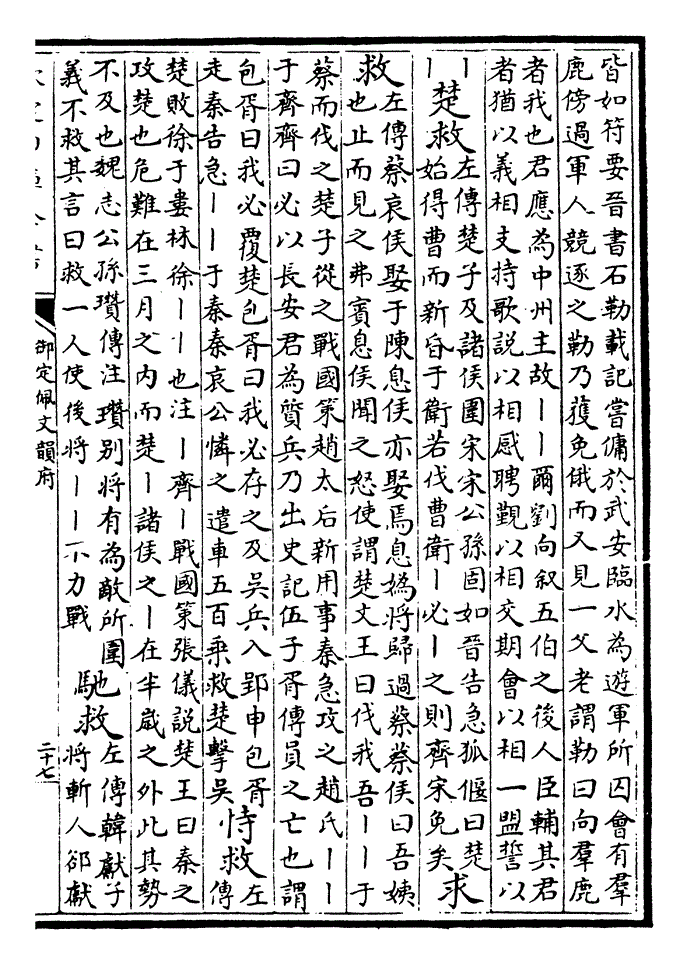 皆如符要晉書石勒載記嘗傭於武安臨水為遊軍所囚會有羣
鹿傍過軍人競逐之勒乃獲免俄而又見一父老謂勒曰向羣鹿
者我也君應為中州主故丨丨爾劉向叙五伯之後人臣輔其君
者猶以義相支持歌説以相感聘覲以相交期會以相一盟誓以
丨丨楚救左傳楚子及諸侯圍宋宋公孫固如晉告急狐偃曰楚
始得曹而新昏于衛若伐曹衛丨必丨之則齊宋免矣求
救左傳蔡哀侯娶于陳息侯亦娶焉息媯將歸過蔡蔡侯曰吾姨
也止而見之弗賓息侯聞之怒使謂楚文王曰伐我吾丨丨于
蔡而伐之楚子從之戰國策趙太后新用事秦急攻之趙氏丨丨
于齊齊曰必以長安君為質兵乃出史記伍子胥傳員之亡也謂
包胥曰我必覆楚包胥曰我必存之及吳兵入郢申包胥
走秦告急丨丨于秦秦哀公憐之遣車五百乘救楚擊吳恃救左傳
楚敗徐于婁林徐丨丨也注丨齊丨戰國策張儀説楚王曰秦之
攻楚也危難在三月之内而楚丨諸侯之丨在半歲之外此其勢
不及也魏志公孫瓚傳注瓚别將有為敵所圍
義不救其言曰救一人使後將丨丨不力戰馳救左傳韓獻子
將斬人郤獻
御定佩文韻府
二十七